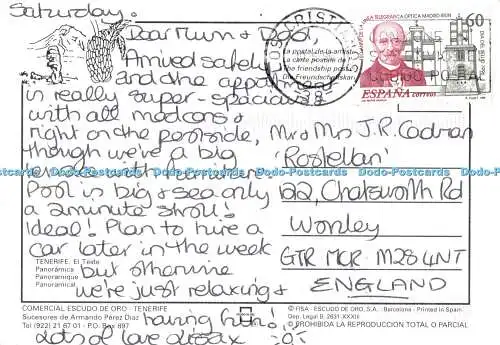 Saturday.
Dear Mum & Dad,
Arrived safely
and the apartment
is really super - spacious &
with all mod cons &
right on the poolside,
though we're a big
Pool is big & sea only
a 2 minute stroll!
Ideal! Plan to hire a
car later in the week
but otherwise
we're just relaxing &
having fun!
Lots of love
TENERIFE. El Teide
Panorámica
Panoramique
Panoramic
COMERCIAL ESCUDO DE ORO · TENERIFE
Sucesores de Armando Pérez Díaz
Tel (922) 21 67 01 - P.O. Box 897
La postal de la amistad
La carte postale de l'
The friendship postcard
Die Freundschaftskar
ESPAÑA correos
60
Mr & Mrs J.R. Cochran
'Rostellan'
122, Chatsworth Rd
Worsley
GTR MCR. M28 4NT
ENGLAND
© FISA - ESCUDO DE ORO, S.A. - Barcelona - Printed in Spain
Dep. Legal B. 2631-XXXII
© PROHIBIDA LA REPRODUCCION TOTAL O PARCIAL
Dodo-Postcards Dodo-Postcards Dodo-Postcards Dodo-Postcards Dodo-Postcards